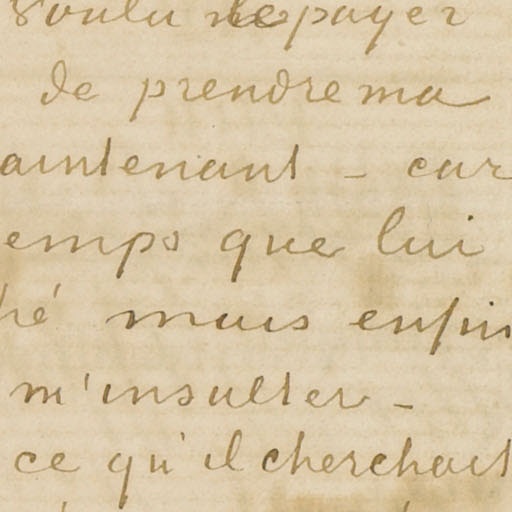 voulu me payer
de prendre ma
aintenant - car
emps que lui
hé mais enfin
m'insulter -
ce qu'il cherchait